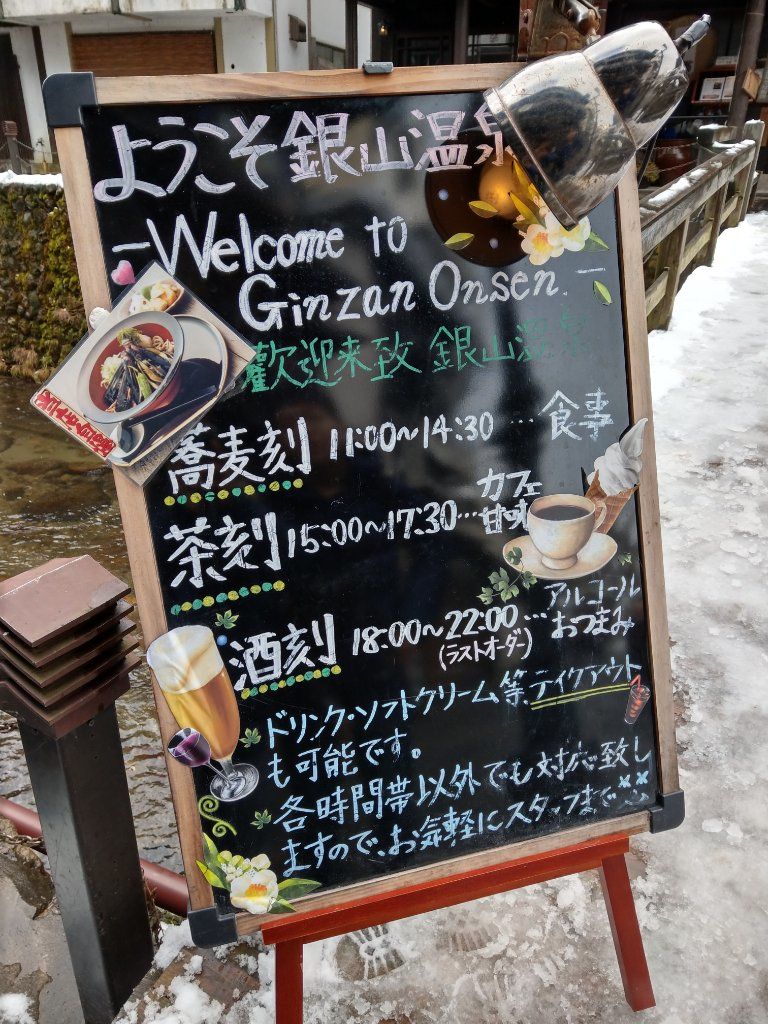 ようこそ銀山温泉
Welcome to
Ginzan Onsen
歓迎来致 銀山温泉
蕎麦刻 11:00~14:30 …食事
茶刻 15:00~17:30…カフェ
甘味
酒刻 18:00~22:00…アルコール
おつまみ
(ラストオーダー)
ドリンク・ソフトクリーム等、テイクアウト
も可能です。
各時間帯以外でも対応致し
ますので、お気軽にスタッフまで